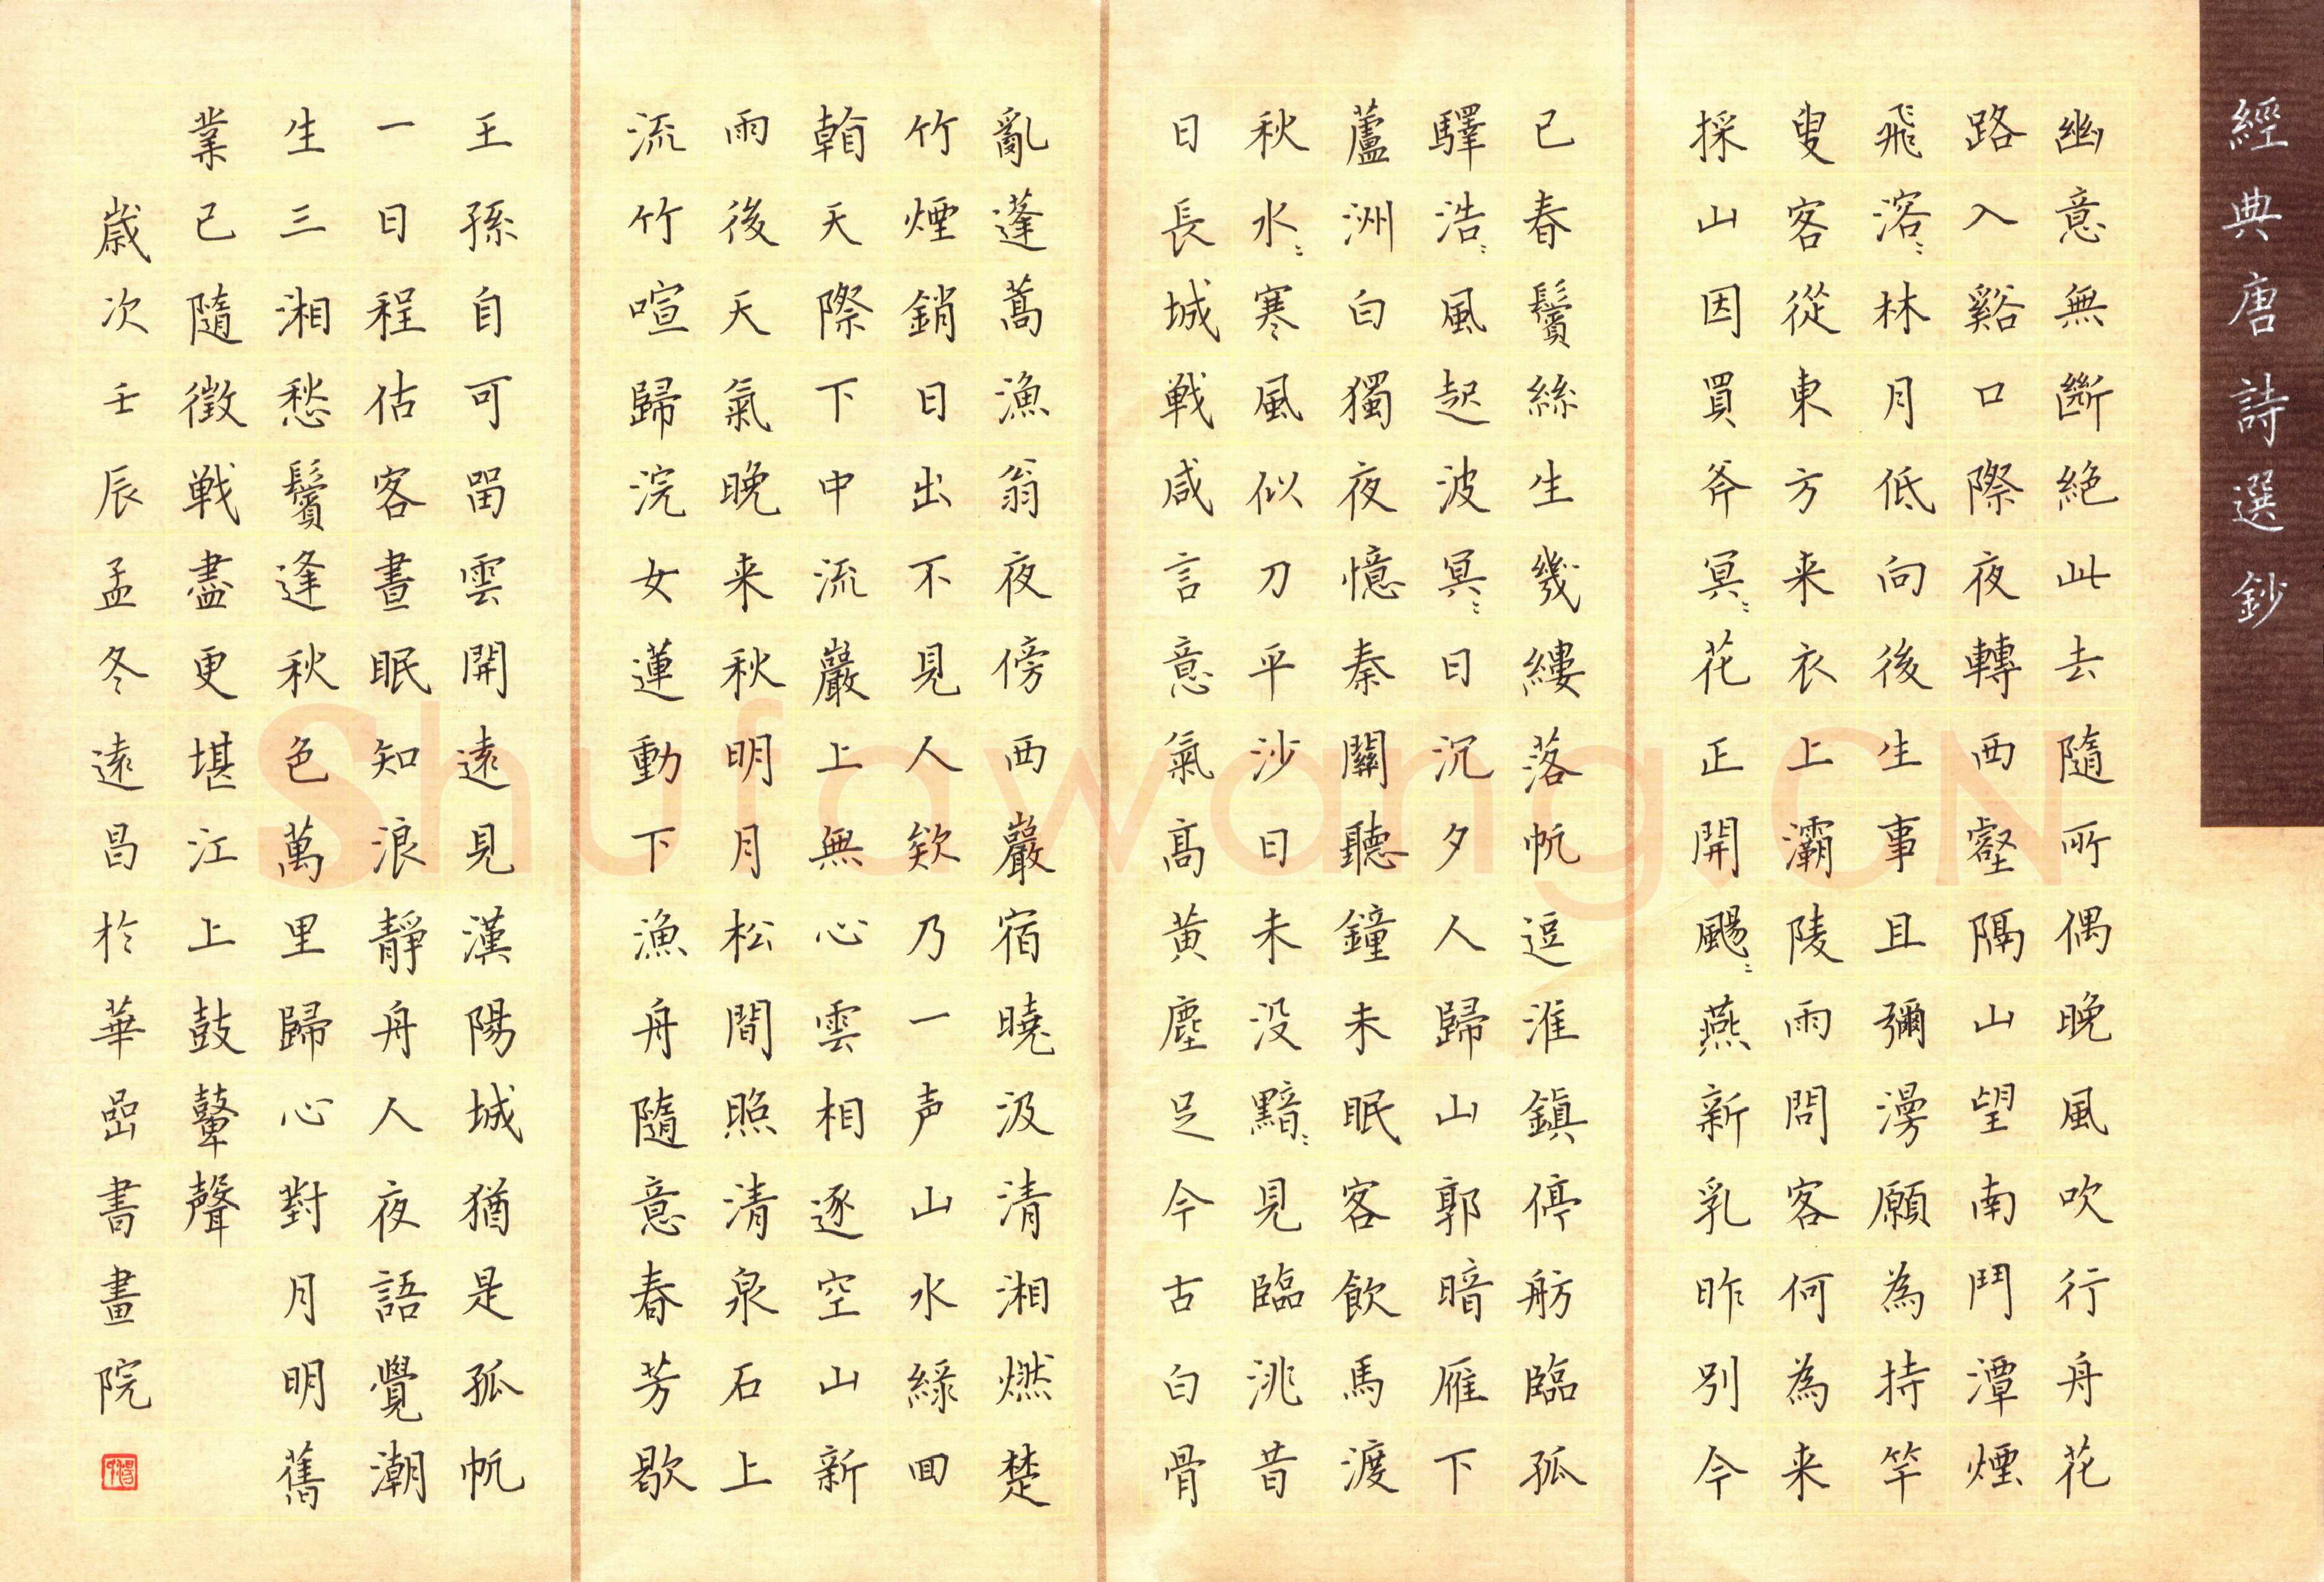 經典唐詩選鈔
幽意無斷絕此去隨所偶晚風吹行舟花
路入谿口際夜轉西壑隔山望南鬥潭煙
飛溶〻林月低向後生事且彌漫願為持竿
叟客從東方来衣上灞陵雨問客何為来
採山因買斧冥〻花正開颺〻燕新乳昨別今
已春鬢絲生幾縷落帆逗淮鎮停舫臨孤
驛浩〻風起波冥〻日沉夕人歸山郭暗雁下
蘆洲白獨夜憶秦關聽鐘未眠客飲馬渡
秋水〻寒風似刀平沙日未没黯〻見臨洮昔
日長城戦咸言意氣高黄塵足今古白骨
亂蓬蒿漁翁夜傍西巖宿曉汲清湘燃楚
竹煙銷日出不見人欸乃一声山水綠回
看天際下中流巖上無心雲相逐空山新
雨後天氣晚来秋明月松間照清泉石上
流竹喧歸浣女蓮動下漁舟隨意春芳歇
王孫自可留雲開遠見漢陽城猶是孤帆
一日程估客晝眠知浪靜舟人夜語覺潮
生三湘愁鬢逢秋色萬里歸心對月明舊
業已隨徵戦盡更堪江上鼓鼙聲
歲次壬辰孟冬遠昌於華嵒書畫院
Shufawang.CN